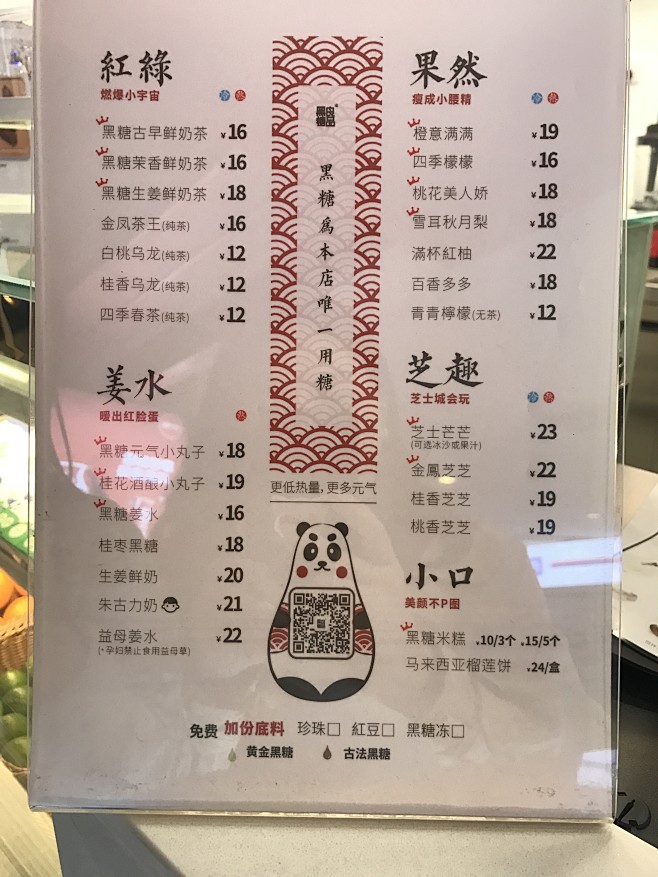 紅綠
燃爆小宇宙 冷 热
黑糖古早鲜奶茶 ¥16
黑糖茉香鲜奶茶 ¥16
黑糖生姜鲜奶茶 ¥18
金凤茶王(纯茶) ¥16
白桃乌龙(纯茶) ¥12
桂香乌龙(纯茶) ¥12
四季春茶(纯茶) ¥12
姜水
暖出红脸蛋 热
黑糖元气小丸子 ¥18
桂花酒酿小丸子 ¥19
黑糖姜水 ¥16
桂枣黑糖 ¥18
生姜鲜奶 ¥20
朱古力奶 ¥21
益母姜水 ¥22
(*孕妇禁止食用益母草)
黑糖爲本店唯一用糖
更低热量,更多元气
果然
瘦成小腰精 冷 热
橙意满满 ¥19
四季檬檬 ¥16
桃花美人娇 ¥18
雪耳秋月梨 ¥18
滿杯紅柚 ¥22
百香多多 ¥18
青青檸檬(无茶) ¥12
芝趣
芝士城会玩 冷 热
芝士芒芒 ¥23
(可选冰沙或果汁)
金鳳芝芝 ¥22
桂香芝芝 ¥19
桃香芝芝 ¥19
小口
美颜不P图
黑糖米糕 ¥10/3个 ¥15/5个
马来西亚榴莲饼 ¥24/盒
免费 加份底料 珍珠□ 紅豆□ 黑糖冻□
黄金黑糖 古法黑糖